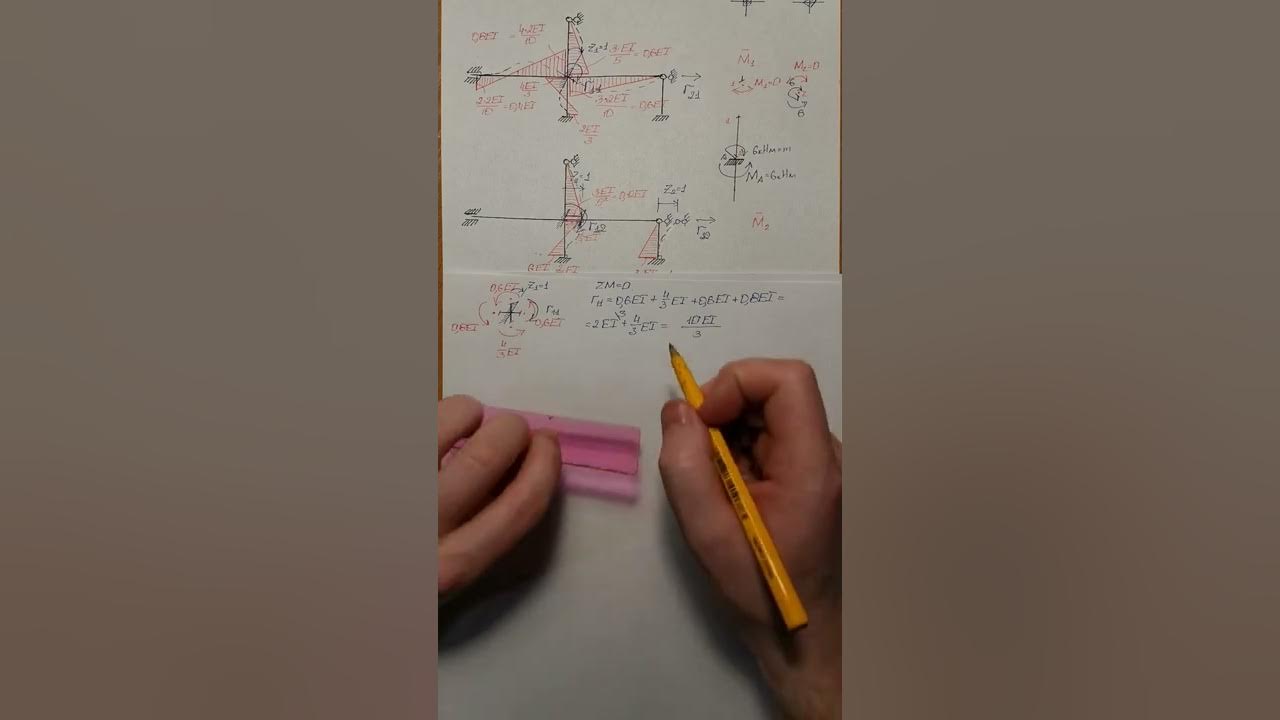 0,8EI = 4·2EI/10
Z₁=1
3·EI/5 = 0,6EI
r₁₁
4EI/3
2·2EI/10 = 0,4EI
3·2EI/10 = 0,6EI
r₂₁
2EI/3
M̄₁
M₁=0
M₂=0
6
6кНм=m
M_A=6кНм
Z₂=1
Z₂=1
r₁₂
r₂₂
M̄₂
0,6EI
Z₁=1
r₁₁
0,6EI
4/3 EI
ΣM=0
r₁₁ = 0,6EI + 4/3 EI + 0,6EI + 0,8EI =
= 2EI + 4/3 EI = 10EI/3